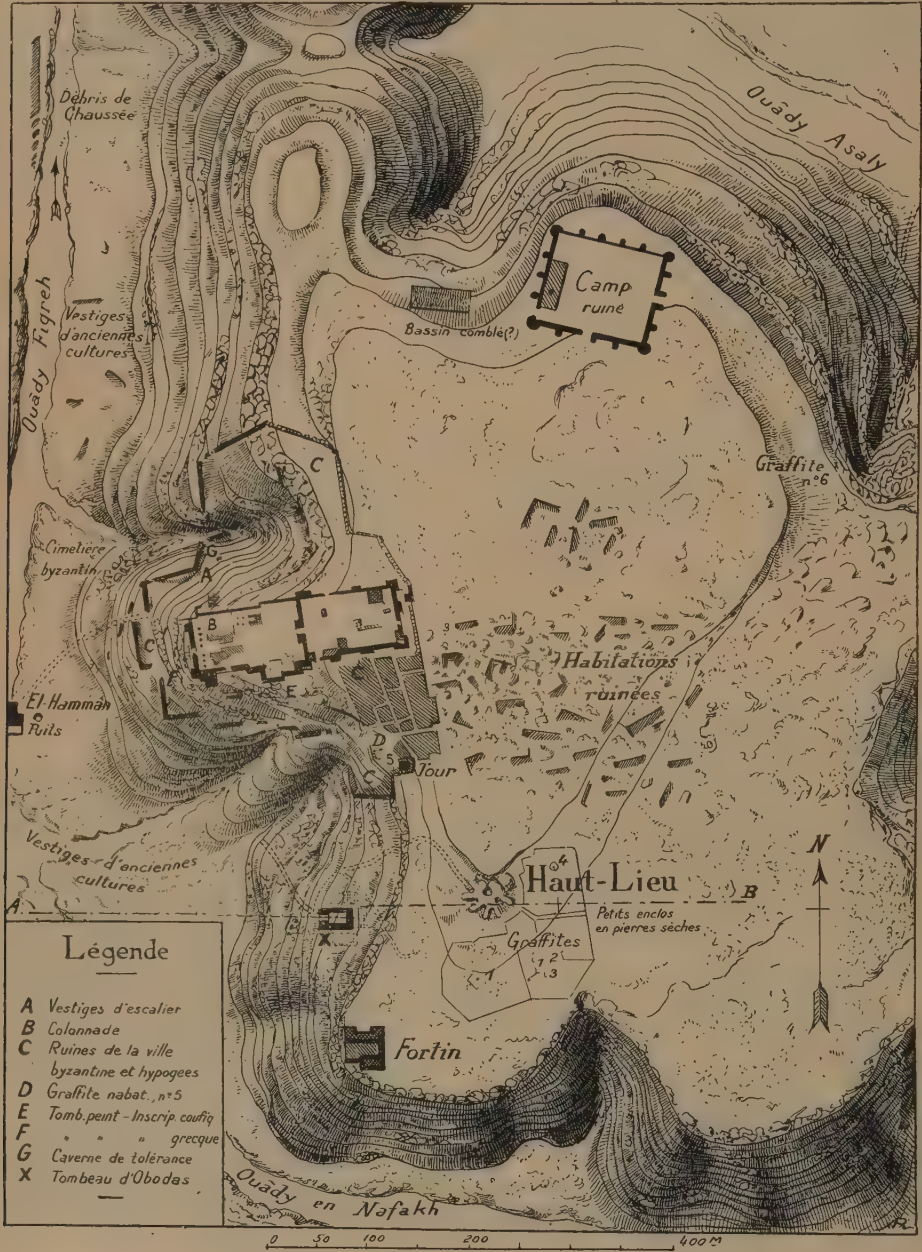 Débris de
Chaussée
Ouâdy Asaly
Ouâdy Figreh
Vestiges
d'anciennes
cultures
Camp
ruiné
Bassin comblé(?)
Graffite
n°6
C
Cimetière
byzantin
G
A
B
C
F
E
C
Habitations
ruinées
El-Hammam
Puits
D
5
Tour
C
Vestiges d'anciennes
cultures
4
Haut-Lieu
A
B
N
Petits enclos
en pierres sèches
X
Graffites
1
2
3
Fortin
Légende
A Vestiges d'escalier
B Colonnade
C Ruines de la ville
byzantine et hypogées
D Graffite nabat., n°5
E Tomb. peint - Inscrip. coufiq
F " " " grecque
G Caverne de tolérance
X Tombeau d'Obodas
Ouâdy en Nafakh
0 50 100 200 400 M